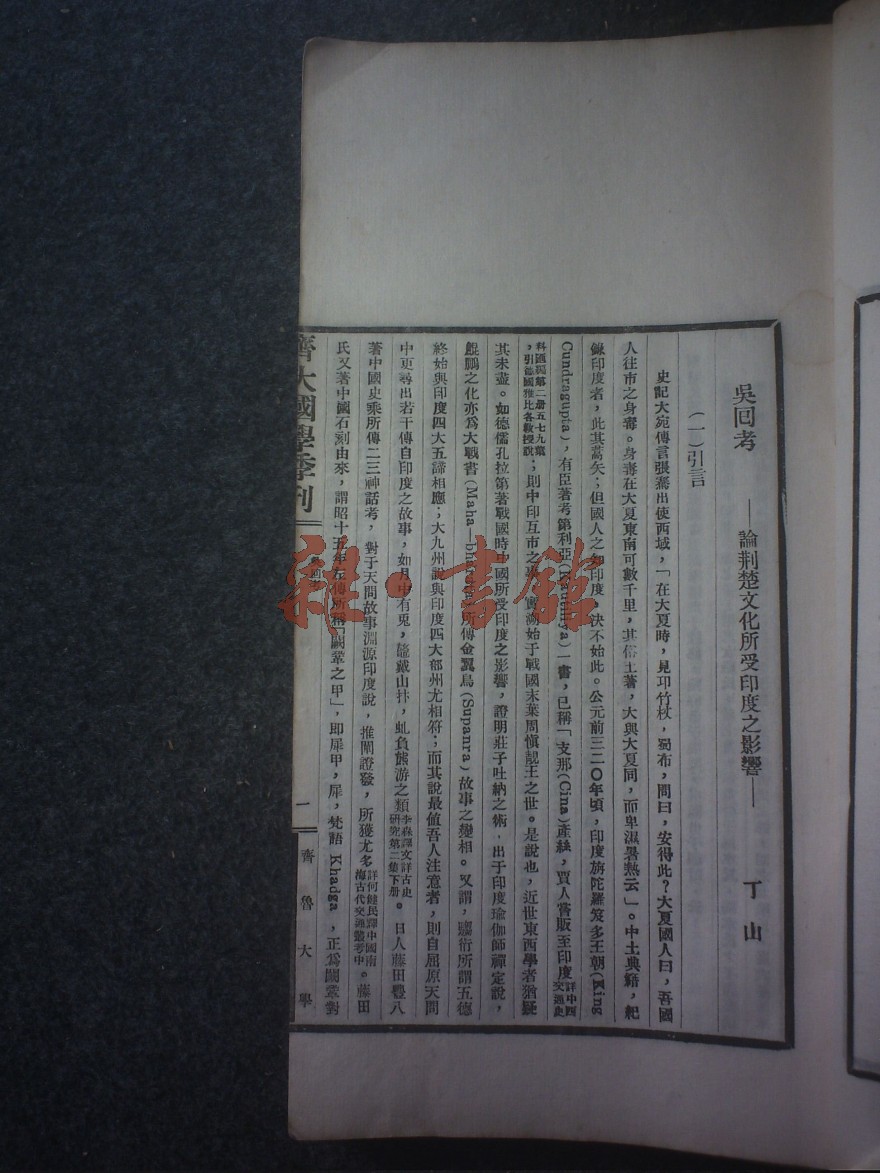 吳回考
—論荆楚文化所受印度之影響—
丁山
(一)引言
史記大宛傳言張騫出使西域,「在大夏時,見邛竹杖,蜀布,問曰,安得此?大夏國人曰,吾國
人往市之身毒。身毒在大夏東南可數千里,其俗土著,大與大夏同,而卑濕暑熱云」。中土典籍,紀
錄印度者,此其蒿矢;但國人之知印度,決不始此。公元前三二〇年頃,印度旃陀羅笈多王朝(King
Cundragupta),有臣著考第利亞(Kautiliya)一書,已稱「支那(Cina)產絲,賈人嘗販至印度詳中西交通史
料匯編第二册五七九葉,引德國雅比各教授說;則中印互市之 溯始于戰國末葉周愼靚王之世。是說也,近世東西學者猶疑
其未盡。如德儒孔拉第著戰國時中國所受印度之影響,證明莊子吐納之術,出于印度瑜伽師禪定說,
鯤鵬之化亦爲大戰書(Maha—bharata)所傳金翼鳥(Supanra)故事之變相。又謂,騶衍所謂五德
終始與印度四大五諦相應;大九州說與印度四大部州尤相符;而其說最值吾人注意者,則自屈原天問
中更尋出若干傳自印度之故事,如月中有兎,鼇戴山抃,虬負熊游之類李 譯文詳古史研究第二集下册。日人藤田豐八
著中國史乘所傳二三神話考,對于天問故事淵源印度說,推闡證發,所獲尤多詳何健民譯中國南海古代交通叢考中。藤田
氏又著中國石刻由來,謂昭十五年左傳所稱「闕鞏之甲」,即犀甲,犀,梵語 Khadga ,正爲闕鞏對
齊大國學季刊
一
齊魯大學
雜·書館